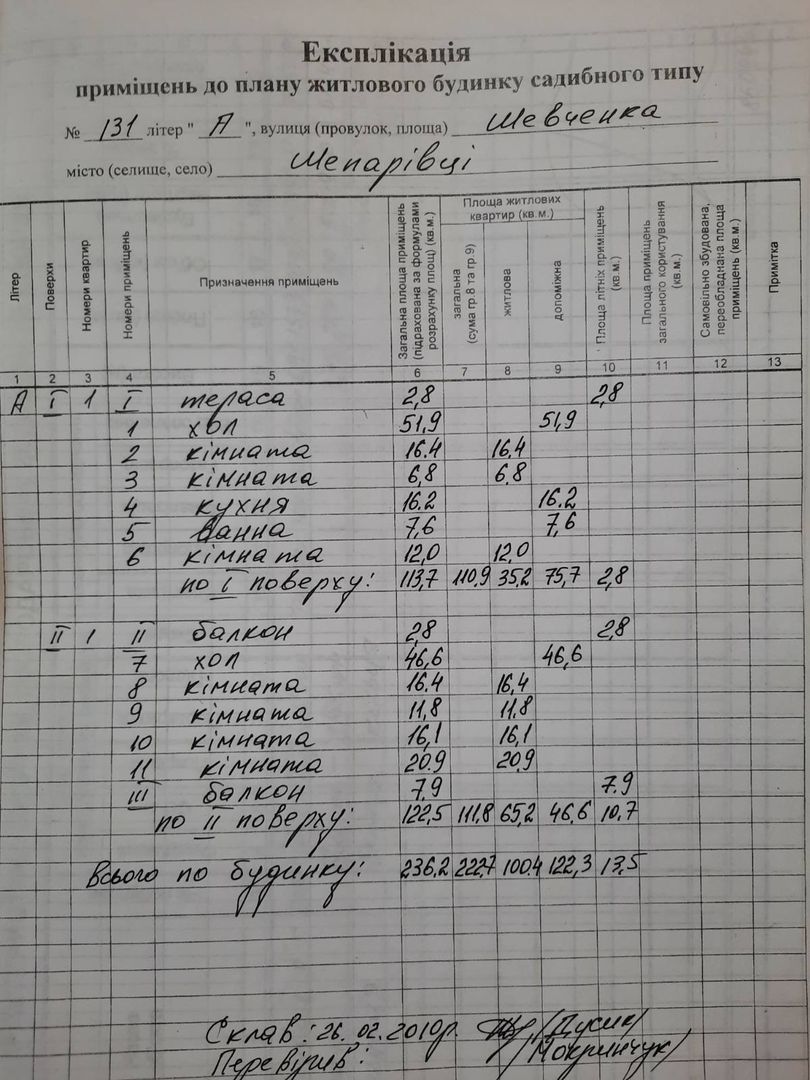 Експлікація
приміщень до плану житлового будинку садибного типу
№ 131 літер " А ", вулиця (провулок, площа) Шевченка
місто (селище, село) Шепарівці
Літер Поверхи Номери квартир Номери приміщень Призначення приміщень Загальна площа приміщень (підрахована за формулами розрахунку площ) (кв.м.) Площа житлових квартир (кв.м.) загальна (сума гр 8 та гр.9) житлова допоміжна Площа літніх приміщень (кв.м.) Площа приміщень загального користування (кв.м.) Самовільно збудована, переобладнана площа приміщень (кв.м.) Примітка
1 2 3 4 5 6 7 8 9 10 11 12 13
А І 1 І тераса 2,8 2,8
1 хол 51,9 51,9
2 кімната 16.4 16.4
3 кімната 6,8 6.8
4 кухня 16.2 16.2
5 ванна 7,6 7,6
6 кімната 12,0 12.0
по І поверху: 113,7 110,9 35,2 75,7 2,8
ІІ 1 ІІ балкон 2,8 2,8
7 хол 46,6 46,6
8 кімната 16.4 16,4
9 кімната 11,8 11.8
10 кімната 16,1 16,1
11 кімната 20.9 20.9
ІІІ балкон 7.9 7.9
по ІІ поверху: 122,5 111,8 65,2 46,6 10,7
Всього по будинку: 236.2 222,7 100.4 122,3 13,5
Склав: 26.02.2010р. /Дусик/
Перевірив: /Мокринчук/